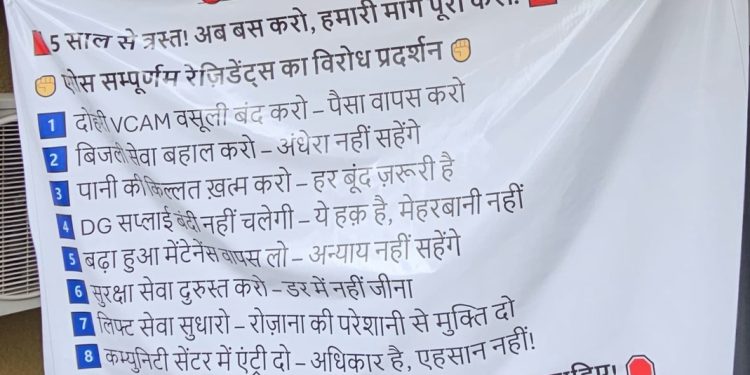 5 साल से त्रस्त! अब बस करो, हमारी मांगें पूरी करो!
✊ ऐस सम्पूर्णम रेज़िडेंट्स का विरोध प्रदर्शन ✊
1 दोहरी VCAM वसूली बंद करो – पैसा वापस करो
2 बिजली सेवा बहाल करो – अंधेरा नहीं सहेंगे
3 पानी की किल्लत ख़त्म करो – हर बूंद ज़रूरी है
4 DG सप्लाई बंदी नहीं चलेगी – ये हक़ है, मेहरबानी नहीं
5 बढ़ा हुआ मेंटेनेंस वापस लो – अन्याय नहीं सहेंगे
6 सुरक्षा सेवा दुरुस्त करो – डर में नहीं जीना
7 लिफ्ट सेवा सुधारो – रोज़ाना की परेशानी से मुक्ति दो
8 कम्युनिटी सेंटर में एंट्री दो – अधिकार है, एहसान नहीं!